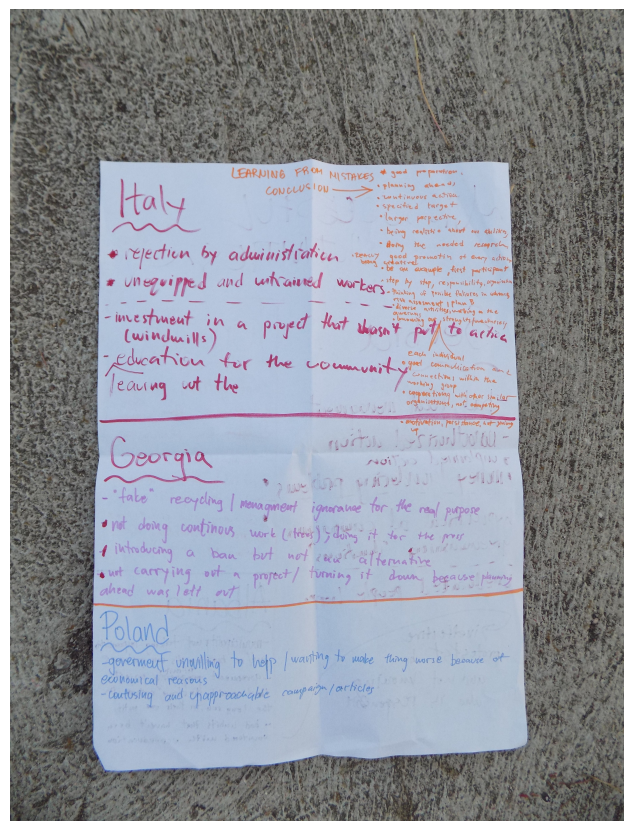 LEARNING FROM MISTAKES
CONCLUSION
good preparation
planning ahead
continuous action
specified target
larger perspective
being realistic about
doing the needed
good promotion of every action
being
be an example, first participant
step by step, responsibility,
risk assessment plan B
each individual
good communication and
connections within the
working group
cooperating with other similar
organizations, not competing
motivation, persistance, not giving
up
Italy
• rejection by administration
• unequipped and untrained workers
- investment in a project that wasn't put to action
(windmills)
- education for the community
leaving out the
Georgia
- "fake" recycling / managment ignorance for the real purpose
• not doing continous work (trend); doing it for the press
• introducing a ban but not alternative
• not carrying out a project / turning it down because planning
ahead was left out
Poland
- goverment unwilling to help / wanting to make thing worse because of
economical reasons
- confusing and unapproachable campaign/articles